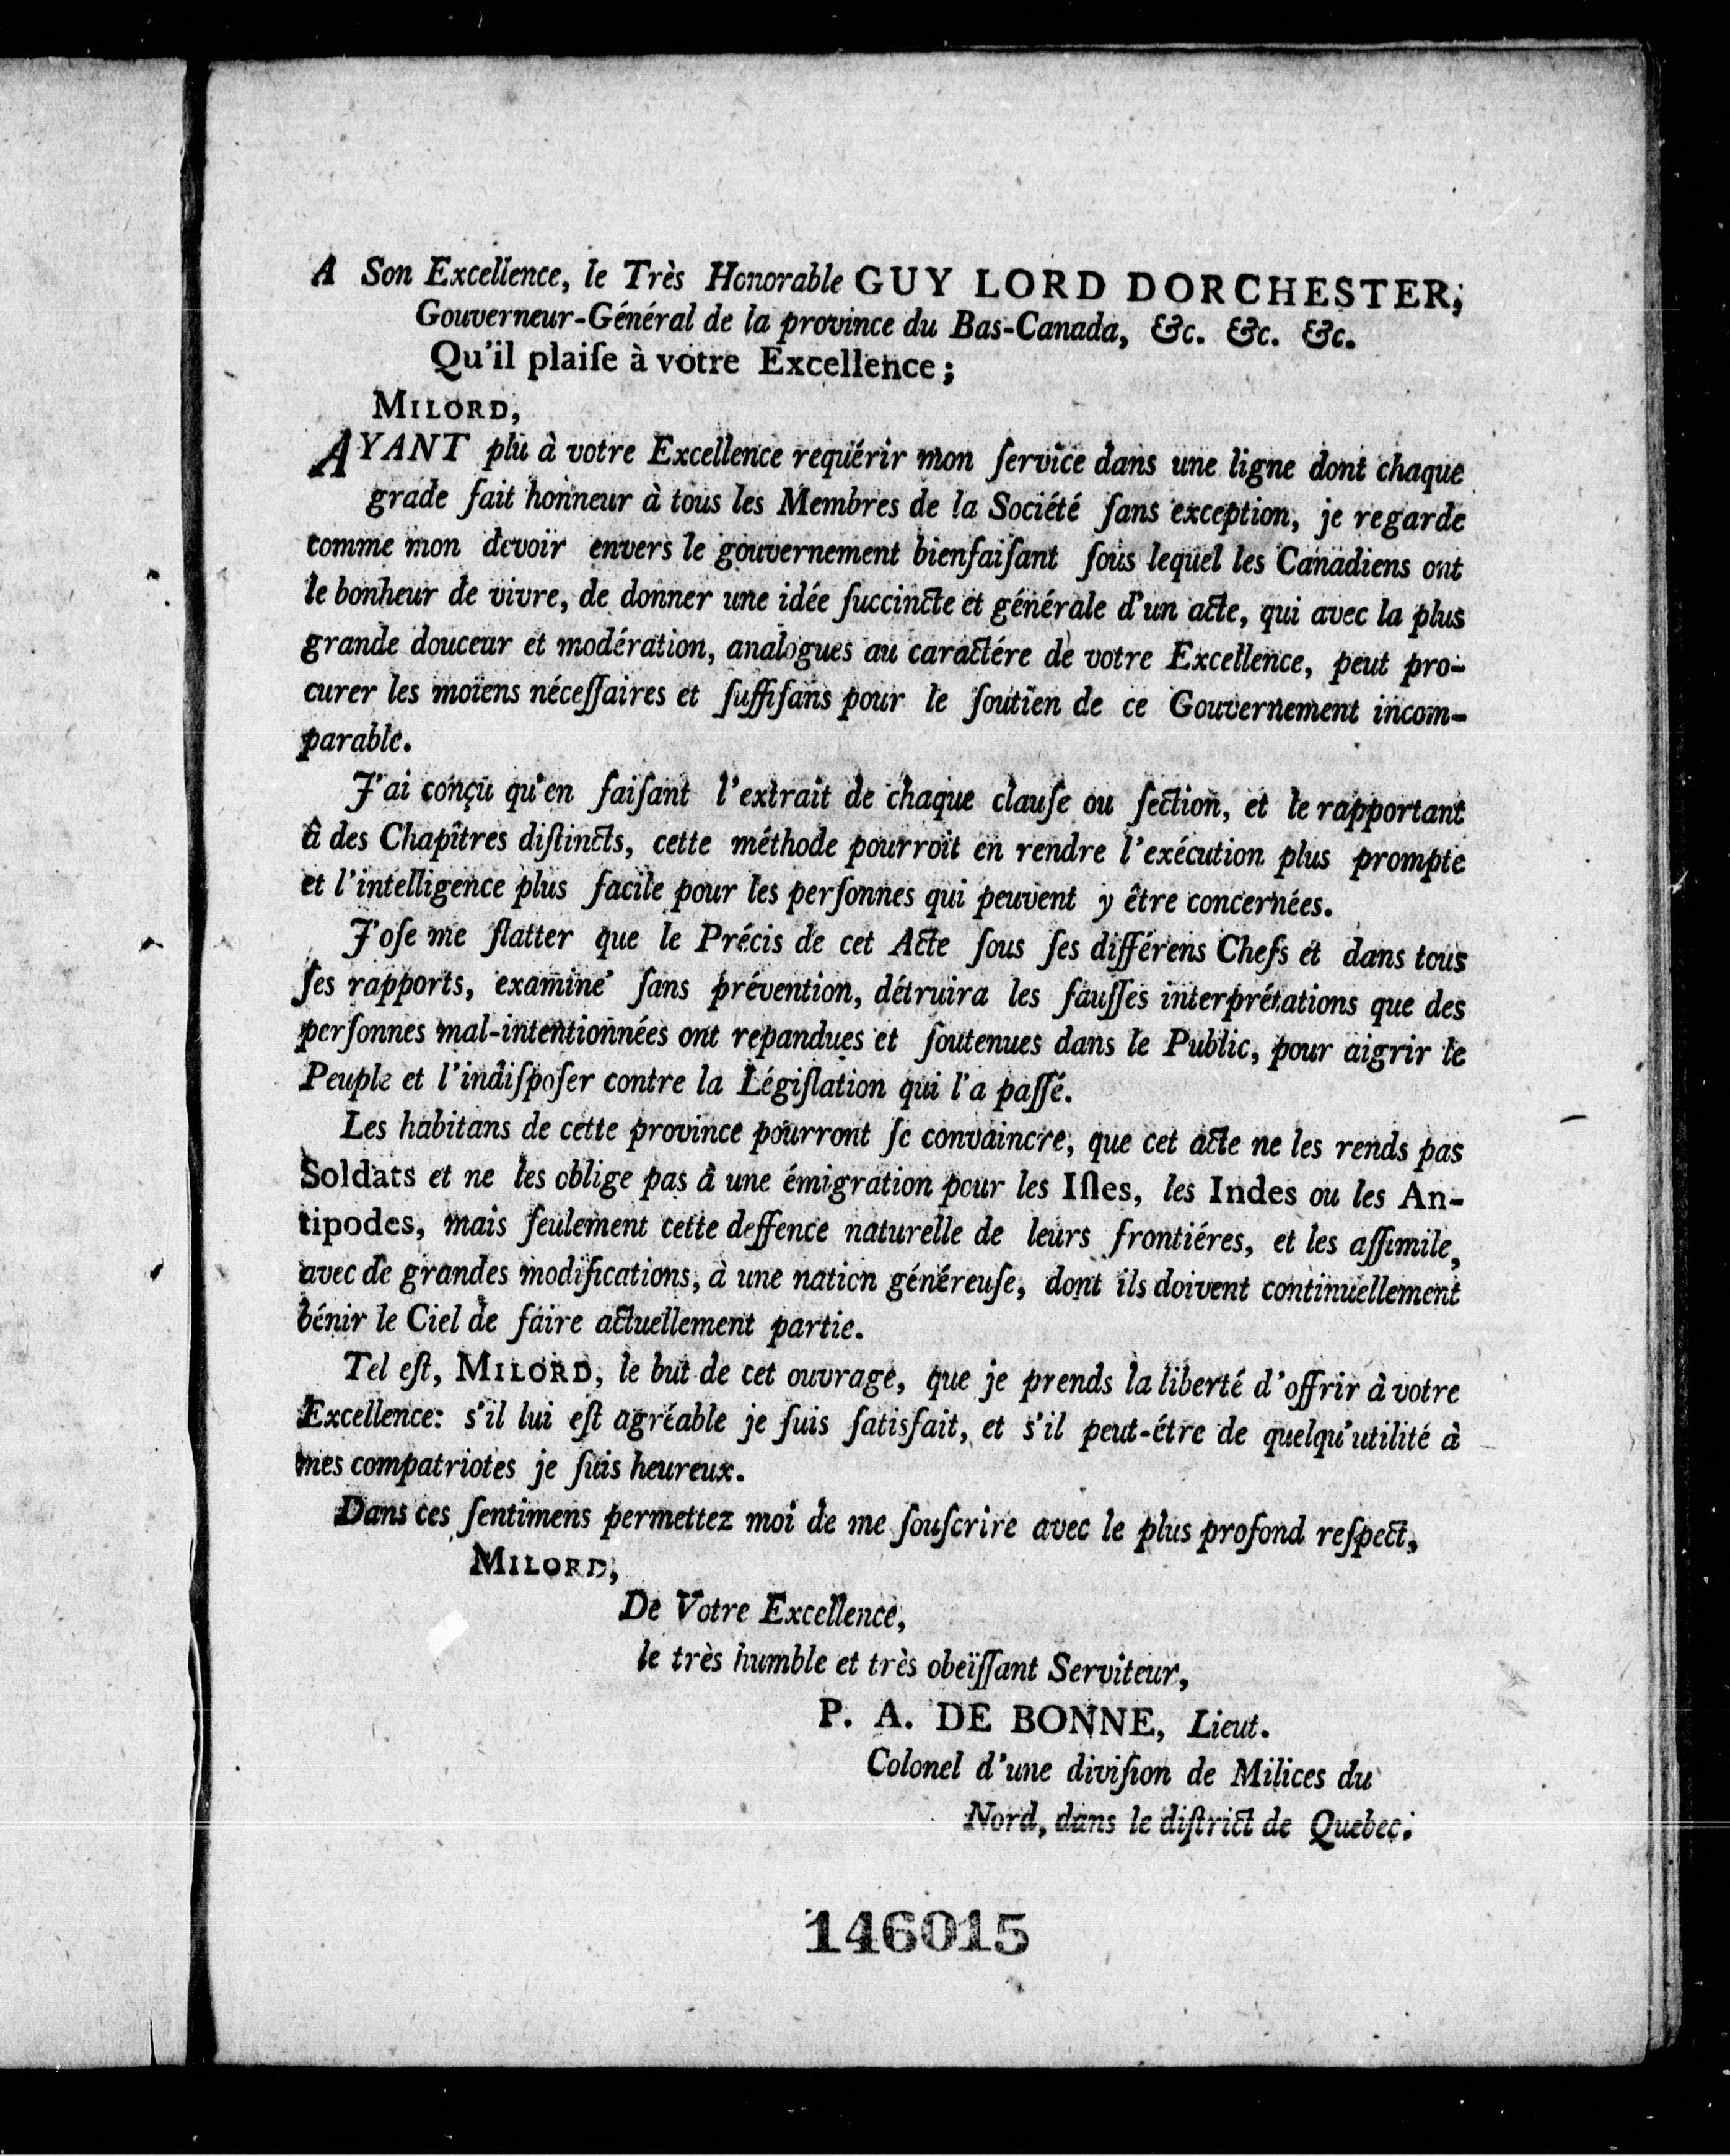 A Son Excellence, le Très Honorable GUY LORD DORCHESTER;
Gouverneur-Général de la province du Bas-Canada, &c. &c. &c.
Qu'il plaiſe à votre Excellence;
MILORD,
AYANT plu à votre Excellence requérir mon ſervice dans une ligne dont chaque
grade fait honneur à tous les Membres de la Société ſans exception, je regarde
comme mon devoir envers le gouvernement bienfaiſant ſous lequel les Canadiens ont
le bonheur de vivre, de donner une idée ſuccincte et générale d'un acte, qui avec la plus
grande douceur et modération, analogues au caractére de votre Excellence, peut pro-
curer les moïens néceſſaires et ſuffiſans pour le ſoutien de ce Gouvernement incom-
parable.
J'ai conçu qu'en faiſant l'extrait de chaque clauſe ou ſection, et le rapportant
à des Chapîtres diſtincts, cette méthode pourroit en rendre l'exécution plus prompte
et l'intelligence plus facile pour les perſonnes qui peuvent y être concernées.
J'oſe me flatter que le Précis de cet Acte ſous ſes différens Chefs et dans tous
ſes rapports, examiné ſans prévention, détruira les fauſſes interprétations que des
perſonnes mal-intentionnées ont repandues et ſoutenues dans le Public, pour aigrir le
Peuple et l'indiſpoſer contre la Légiſlation qui l'a paſſé.
Les habitans de cette province pourront ſe convaincre, que cet acte ne les rends pas
Soldats et ne les oblige pas à une émigration pour les Iſles, les Indes ou les An-
tipodes, mais ſeulement cette deffence naturelle de leurs frontiéres, et les aſſimile,
avec de grandes modifications, à une nation généreuſe, dont ils doivent continuellement
bénir le Ciel de faire actuellement partie.
Tel eſt, MILORD, le but de cet ouvrage, que je prends la liberté d'offrir à votre
Excellence: s'il lui eſt agréable je ſuis ſatisfait, et s'il peut-étre de quelqu'utilité à
mes compatriotes je ſuis heureux.
Dans ces ſentimens permettez moi de me ſouſcrire avec le plus profond reſpect,
MILORD,
De Votre Excellence,
le très humble et très obeïſſant Serviteur,
P. A. DE BONNE, Lieut.
Colonel d'une diviſion de Milices du
Nord, dans le diſtrict de Quebec.
146015